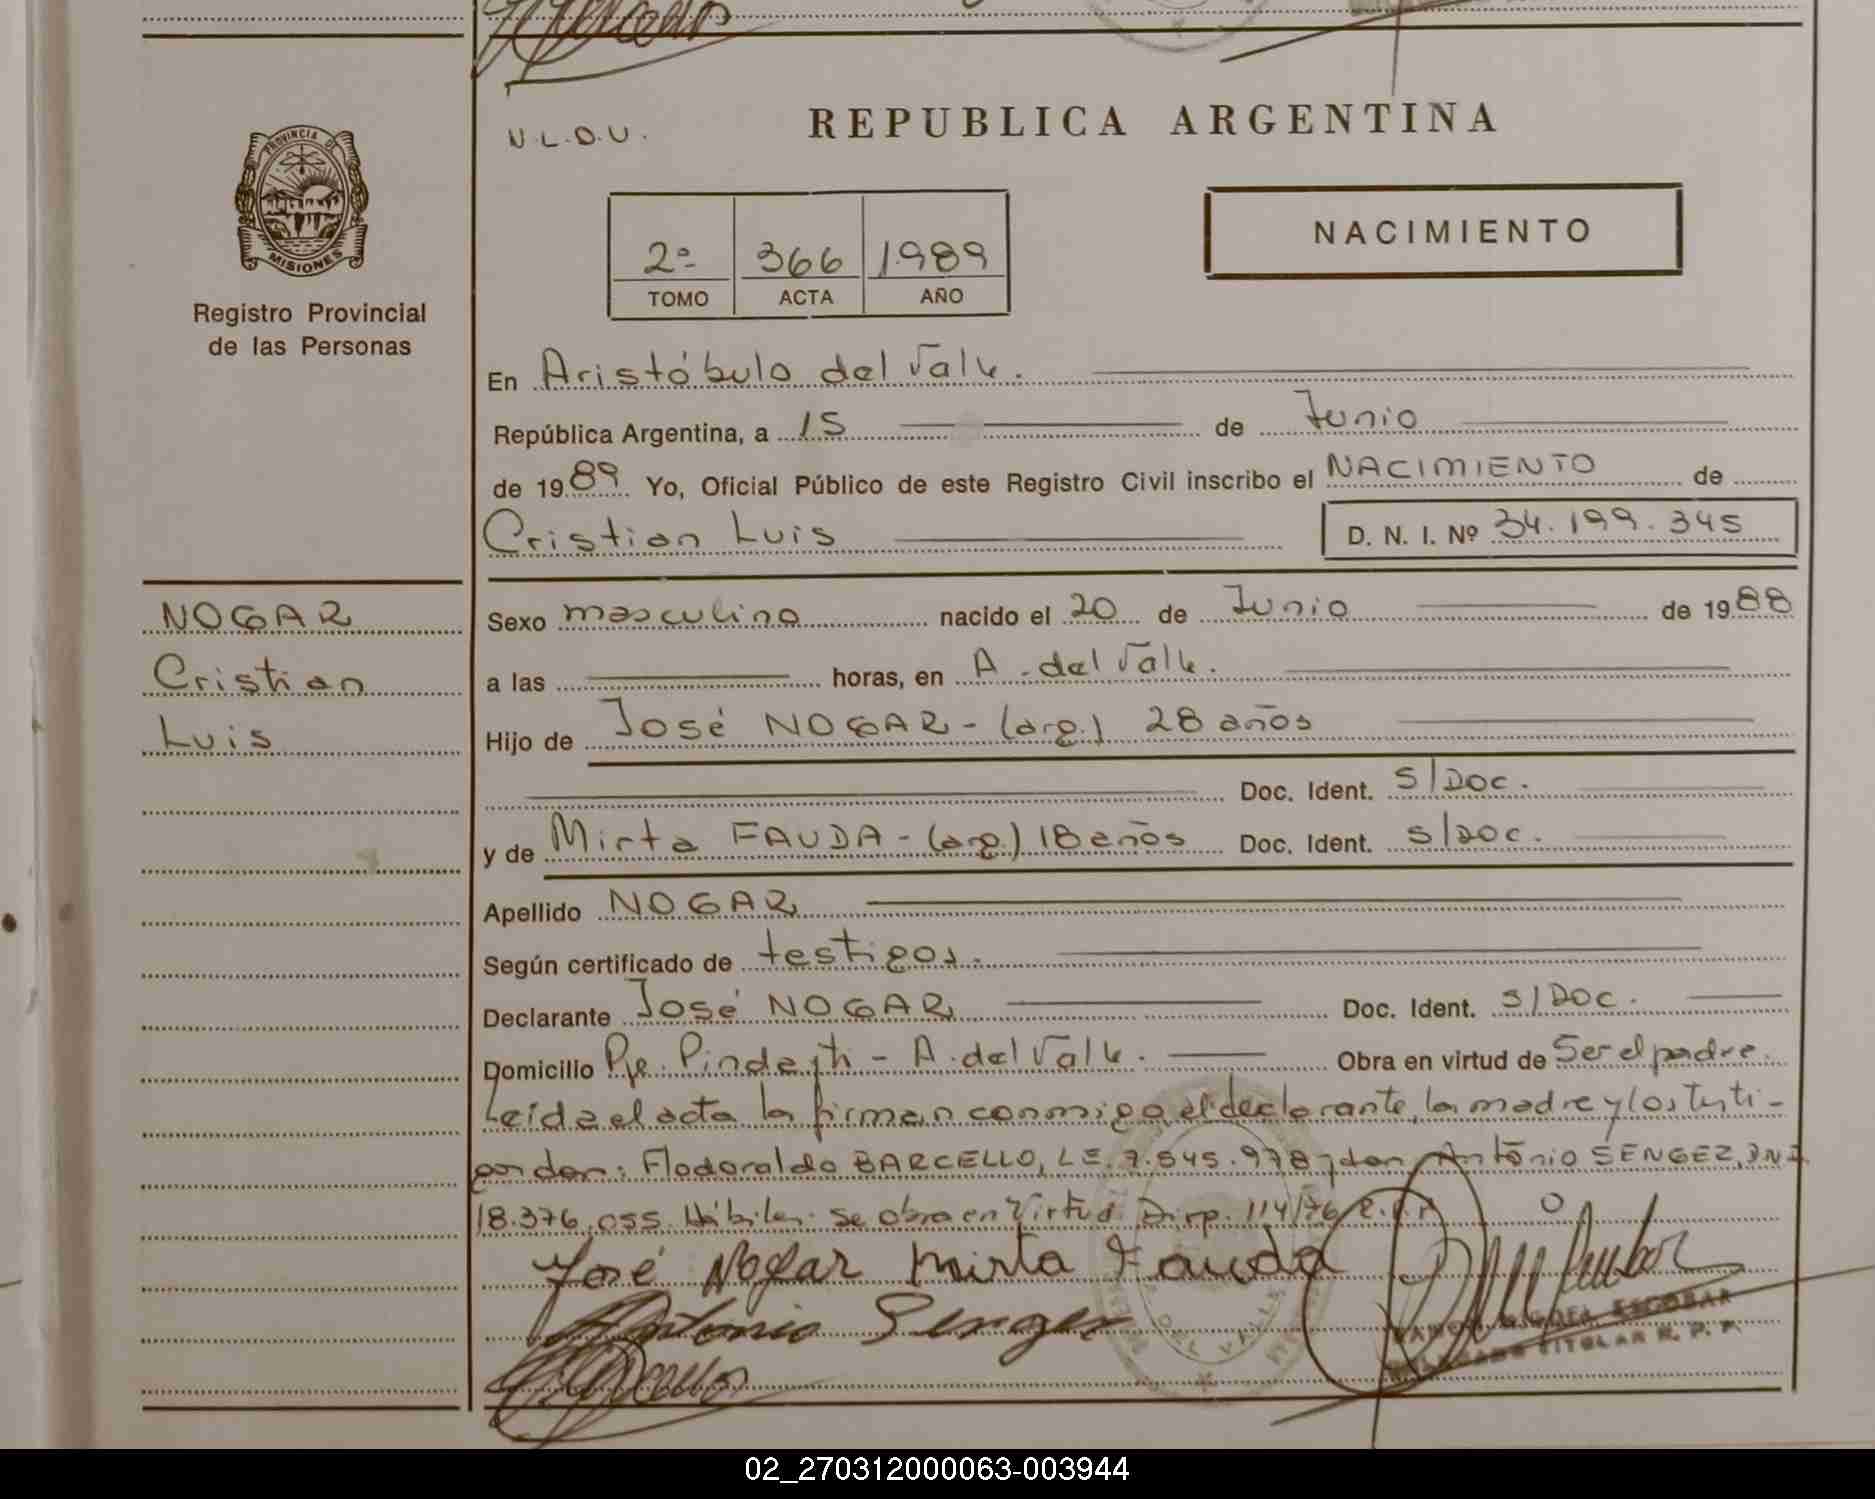 N.L.D.U.
REPUBLICA ARGENTINA
NACIMIENTO
2º 366 1989
TOMO ACTA AÑO
PROVINCIA DE
MISIONES
Registro Provincial
de las Personas
En Aristóbulo del Valle.
República Argentina, a 15 de Junio
de 1989 Yo, Oficial Público de este Registro Civil inscribo el NACIMIENTO de
Cristian Luis D. N. I. Nº 34.199.345
NOGAR
Cristian
Luis
Sexo masculino nacido el 20 de Junio de 1988
a las horas, en A. del Valle.
Hijo de José NOGAR - (arg.) 28 años
Doc. Ident. S/Doc.
y de Mirta FAUDA - (arg.) 18 años Doc. Ident. S/Doc.
Apellido NOGAR
Según certificado de testigos.
Declarante José NOGAR Doc. Ident. S/Doc.
Domicilio Pje. Pindayti - A. del Valle. Obra en virtud de Ser el padre.
Leída el acta la firman conmigo el declarante, la madre y los testi-
gos don: Flodoraldo BARCELLO, L.E. 7.545.978 y don Antonio SENGER, DNI
18.376.055. Hábiles. Se obra en Virtud Disp. 114/76
José Nogar Mirta Fauda
Antonio Senger
ESCOBAR
TITULAR R. P. P.
02_270312000063-003944